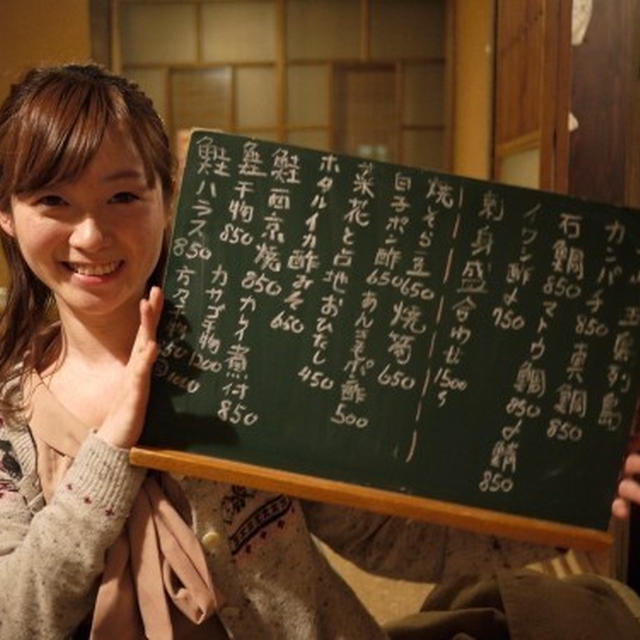 五島列島
カンパチ 850 真鯛 850
石鯛 850 マトウ鯛 850 〆鯖 850
イワシ酢〆 750
刺身盛合わせ 1500
焼そら豆 650 焼筍 650
白子ポン酢 650 あんきもポン酢 500
菜花と占地おひたし 450
ホタルイカ酢みそ 650
鮭西京焼 850 カレイ煮付 850
鮭干物 850 カサゴ干物 1200
鮭ハラス 850
1000